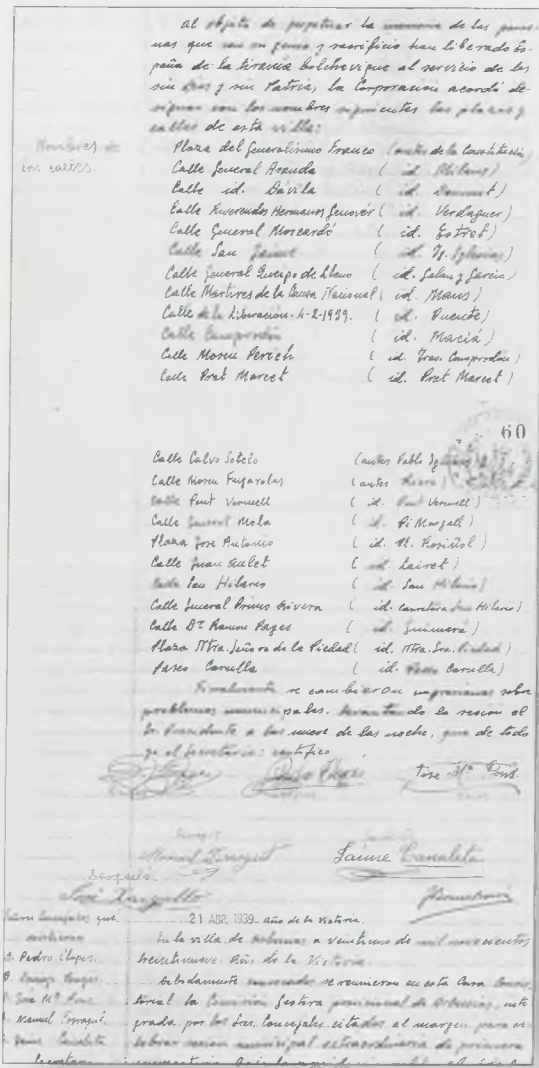 Al objeto de perpetuar la memoria de las perso-
nas que con su genio y sacrificio han liberado Es-
paña de la tirania bolchevique al servicio de los
sin Dios y sin Patria, la Corporación acordó de-
signar con los nombres siguientes las plazas y
calles de esta villa:
Nombres de
las calles.
Plaza del Generalisimo Franco (antes de la Constitución)
Calle General Aranda ( id. Milans)
Calle id. Dávila ( id. )
Calle Hermanos Genover ( id. Verdaguer)
Calle General Moscardó ( id. Estret)
Calle San Jaime ( id. Ig. Iglesias)
Calle General Queipo de Llano ( id. Galan y Garcia)
Calle Martires de la Causa Nacional ( id. )
Calle de la Liberación-4-2-1939. ( id. Puente)
Calle Camprodón ( id. Maciá)
Calle Mosen Perich ( id. Trav. Camprodón)
Calle Prat Marcet ( id. Prat Marcet)
60
Calle Calvo Sotelo (antes Pablo Iglesias)
Calle Mosen Fugarolas (antes )
Calle Font Vermell ( id. Font Vermell)
Calle General Mola ( id. Pi Margall)
Plaza Jose Antonio ( id. Pl. Rosiñol)
Calle Juan Gulet ( id. Lairet)
Calle San Hilario ( id. San Hilario)
Calle General Primo Rivera ( id. carretera San Hilario)
Calle Dr. Ramon Pages ( id. Guimerá)
Plaza Ntra. Señora de la Piedad ( id. Ntra. Sra. Piedad)
Paseo Carulla ( id. Paseo Carulla)
Finalmente se cambiaron impresiones sobre
problemas municipales. levantando la sesion el
Sr. Presidente a las nueve de las noche, que de todo
yo el Secretario: certifico
Jose Mª Font.
Manuel
Jaime Canaleta
José
21 ABR. 1939 - año de la Victoria.
Señores Concejales que
asistieron
En la villa de Arbucias a veintiuno de mil novecientos
treintinueve. Año de la Victoria.
D. Pedro
Debidamente convocados se reunieron en esta Casa Consis-
torial la Comisión Gestora provisional de Arbucias, inte
D. Jose Mª Font
D. Manuel
grada por los Sres. Concejales citados al margen para ce
D. Jaime Canaleta
lebrar sesion municipal extraordinaria de primera
Secretario